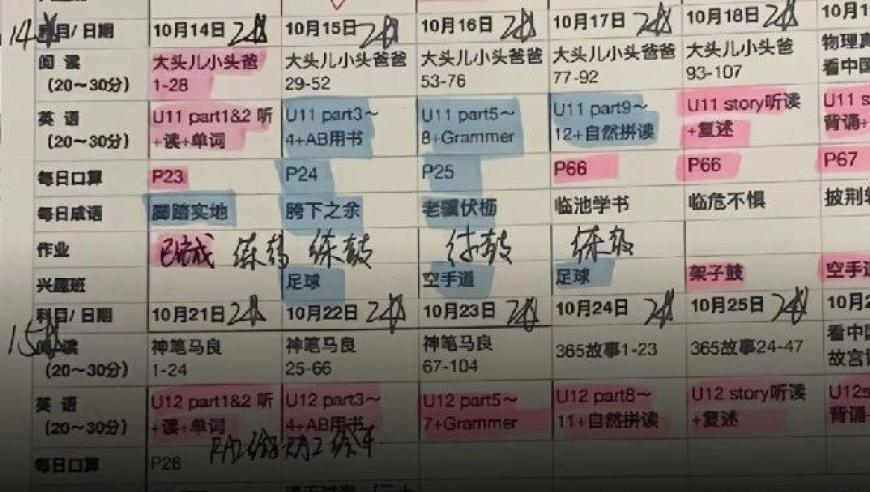 科目/日期 10月14日 10月15日 10月16日 10月17日 10月18日 10月1
阅读 大头儿小头爸爸 大头儿小头爸爸 大头儿小头爸爸 大头儿小头爸爸 大头儿小头爸爸 物理真
(20~30分) 1-28 29-52 53-76 77-92 93-107 看中国
英语 U11 part1&2 听 U11 part3~ U11 part5~ U11 part9~ U11 story听读 U11 s
(20~30分) +读+单词 4+AB用书 8+Grammer 12+自然拼读 +复述 背诵+
每日口算 P23 P24 P25 P66 P66 P67
每日成语 脚踏实地 胯下之余 老骥伏枥 临池学书 临危不惧 披荆
作业 已完成 练鼓 练鼓 练鼓 练鼓
兴趣班 足球 空手道 足球 架子鼓 空手道
科目/日期 10月21日 10月22日 10月23日 10月24日 10月25日 10月2
阅读 神笔马良 神笔马良 神笔马良 365故事1-23 365故事24-47 看中国
(20~30分) 1-24 25-66 67-104 故宫
英语 U12 part1&2 听 U12 part3~ U12 part5~ U12 part8~ U12 story听读 U12s
(20~30分) +读+单词 4+AB用书 7+Grammer 11+自然拼读 +复述 背诵+
每日口算 P26